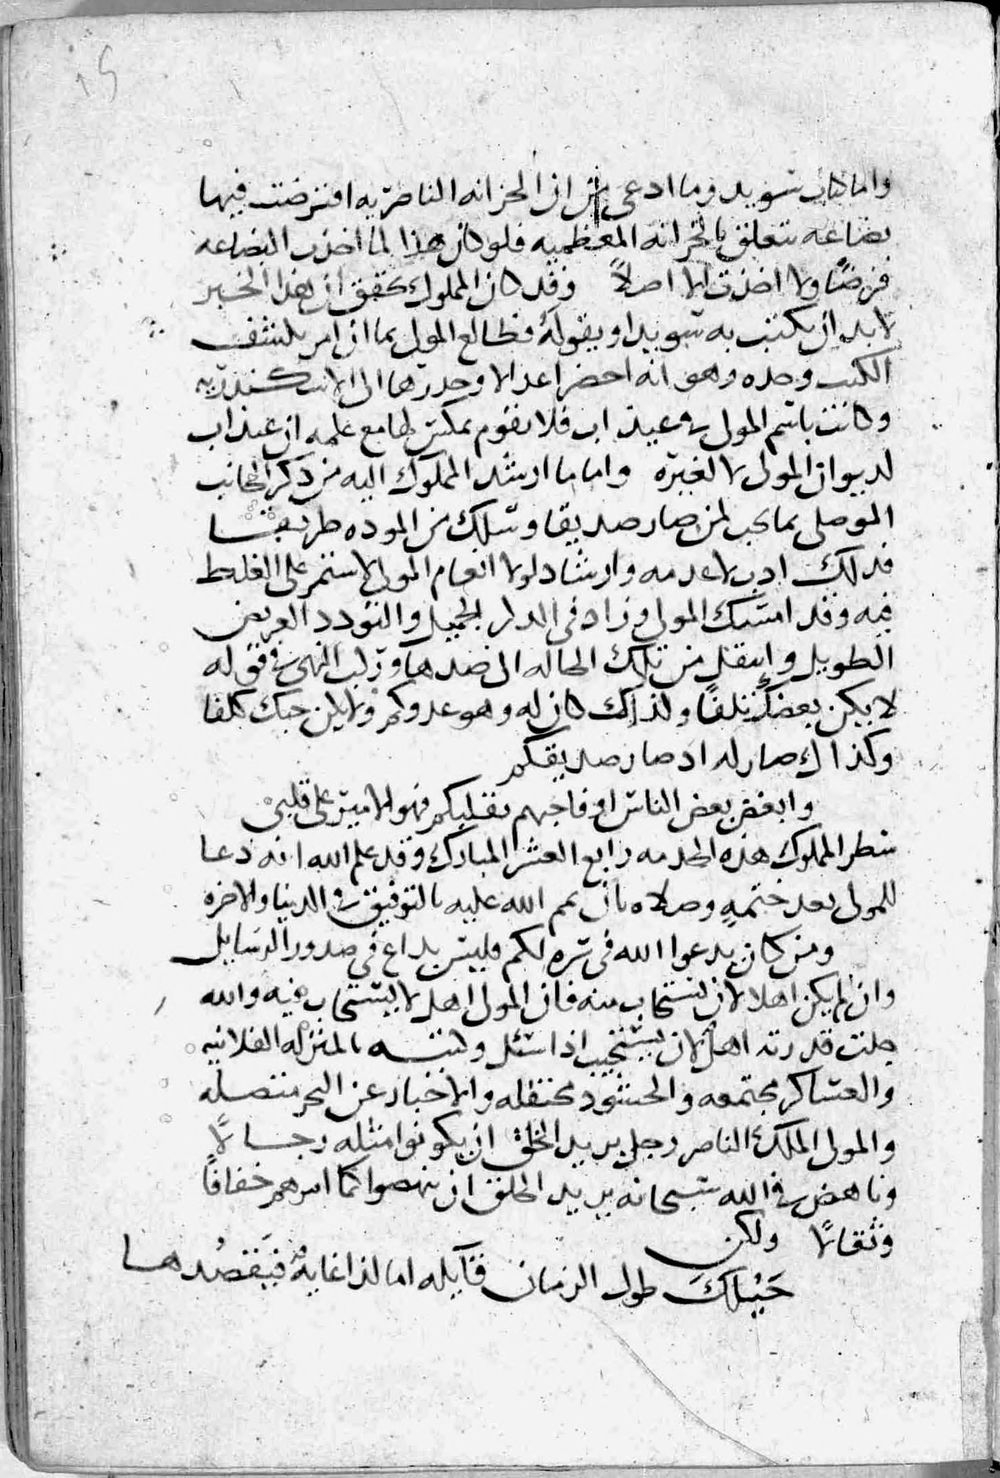 واما كتاب سويد وما ادعى من ان الخزانه الناصريه اقترضت فيها
بضاعه تتعلق بالخزانه المعظميه فلو كان هذا لما اخذت البضاعه
قرضا ولا اخذت الا اصلاً وقد كان المملوك تحقق ان هذا الخبر
لابد ان يكتب به سويد او يقوله فطالع المولى بما ان امر بكشف
الكتب وجده وهو انه احضر اعدالا وحدرها الى الاسكندريه
وكانت باسم المولى في عيذاب فلا تقوم بمكس لها مع علمه ان عيذاب
لديوان المولى لا لغيره واما ما ارشد المملوك اليه من ذكر الجانب
الموصلي بما يجب لمن صار صديقا وسلك من الموده طريقا
فذلك ادب لا عدمه وارشاد لولا انعام المولى لاستمر على الغلط
فيه وقد امسك المولى وزاد في الذكر الجميل والتودد العريض
الطويل وانتقل من تلك الحاله الى ضدها وركب النهى في قوله
لا يكن بغضك تلفا وكذلك كان له وهو عدوكم ولا يكن حبك كلفا
وكذاك صار له اذ صار صديقكم
وابغض بعض الناس او فاحبهم بقلبكم فهو الامير على قلبي
سطر المملوك هذه الخدمه رابع العشر المبارك وقد علم الله انه دعا
للمولى بعد ختمه وصلاه بان يمم الله عليه بالتوفيق في الدنيا والاخره
ومن كان يدعوا الله في سره لكم فليس بداع في صدور الرسايل
وان لم يكن اهلا لان يستجاب منه فان المولى اهل لا يستجاب فيه والله
جلت قدرته اهل لان يستجيب اذا سئل وكتبه بالمنزله الفلانيه
والعساكر مجتمعه والحشود محتفله والاخبار عن البحر متصله
والمولى الملك الناصر رجل يريد الخلق ان يكونوا مثله رجالاً
وناهض في الله سبحانه يريد الخلق ان ينهضوا كما امرهم خفافا
وثقالا ولكن
حَيْلك طول الزمان قايله اما لذا غايةٌ فيَقصُدها